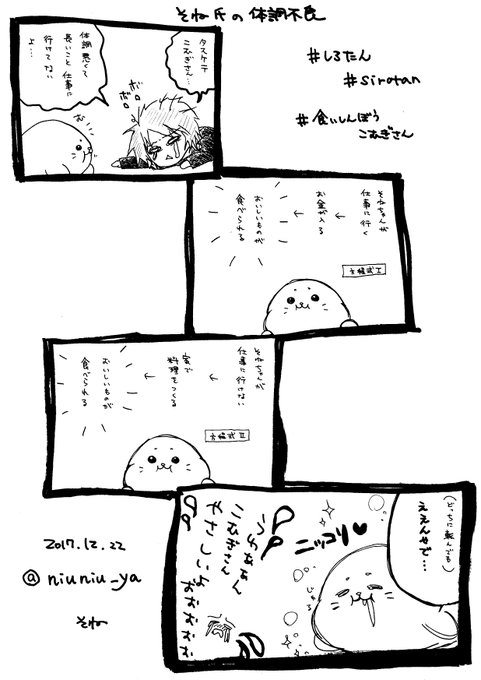 そね氏の体調不良
#しろたん
#sirotan
#食いしんぼう
こむぎさん
タスケテ
こむぎさん…
ボロ
ボロ
体調悪くて
長いこと仕事に
行けてない
よ…
そねちゃんが
仕事に行く
←
お金が入る
←
おいしいものが
食べられる
方程式I
そねちゃんが
仕事に行けない
←
家で
料理をつくる
←
おいしいものが
食べられる
方程式II
(どっちに転んでも)
ええんやで…
ニッコリ♥
じゅる
うわぁぁん
こむぎさん
やさしいよ
おおおおお
2017.12.22
@niuniu_ya
そね